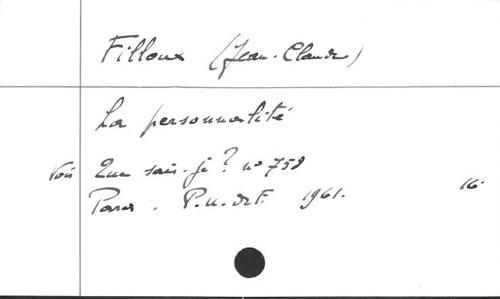 Filloux (Jean-Claude)
La personnalité
Voir Que sais-je? no 758
Paris. P.U. de F. 1961. 16°